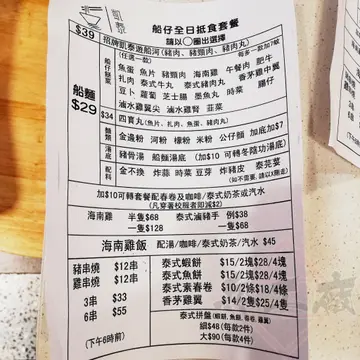 凱泰
船仔全日抵食套餐
請以〇圈出選擇
$39 招牌凱泰遊船河(豬肉、豬頸肉、豬肉丸)
船麵 $29
船仔餸菜
(任選一款) 每多一款加7蚊
魚蛋 魚片 豬頸肉 海南雞 午餐肉 肥牛
扎肉 泰式牛丸 泰式豬肉丸 香茅雞中翼
豆卜 蘿蔔 芝士腸 墨魚丸 時菜 腸仔
滷水雞翼尖 滷水雞腎 韮菜
$34 四寶丸(魚片、扎肉、魚蛋、豬肉丸)
麵類 金邊粉 河粉 檬粉 米粉 公仔麵 加底加$7
湯底 豬骨湯 船麵湯底 (加$10 可轉冬陰功湯底)
配料 金不換 炸蒜 時菜 豆芽 炸豬皮 泰芫荽
(如不需要, 請以X刪走)
加$10可轉套餐配春卷及咖啡/泰式奶茶或汽水
(凡穿著校服者即減$2)
海南雞 半隻$68 泰式滷豬手 例$38
一隻$128 一隻$68
海南雞飯 配湯/咖啡/泰式奶茶/汽水 $45
豬串燒 $12串
雞串燒 $12串
3串 $33
6串 $55
(下午6時前)
泰式蝦餅 $15/2塊$28/4塊
泰式魚餅 $15/2塊$28/4塊
泰式素春卷 $10/2條$18/4條
香茅雞翼 $14/2隻$25/4隻
泰式拼盤(蝦餅,魚餅,春卷,雞翼)
細$48(每款2件)
大$90(每款4件)